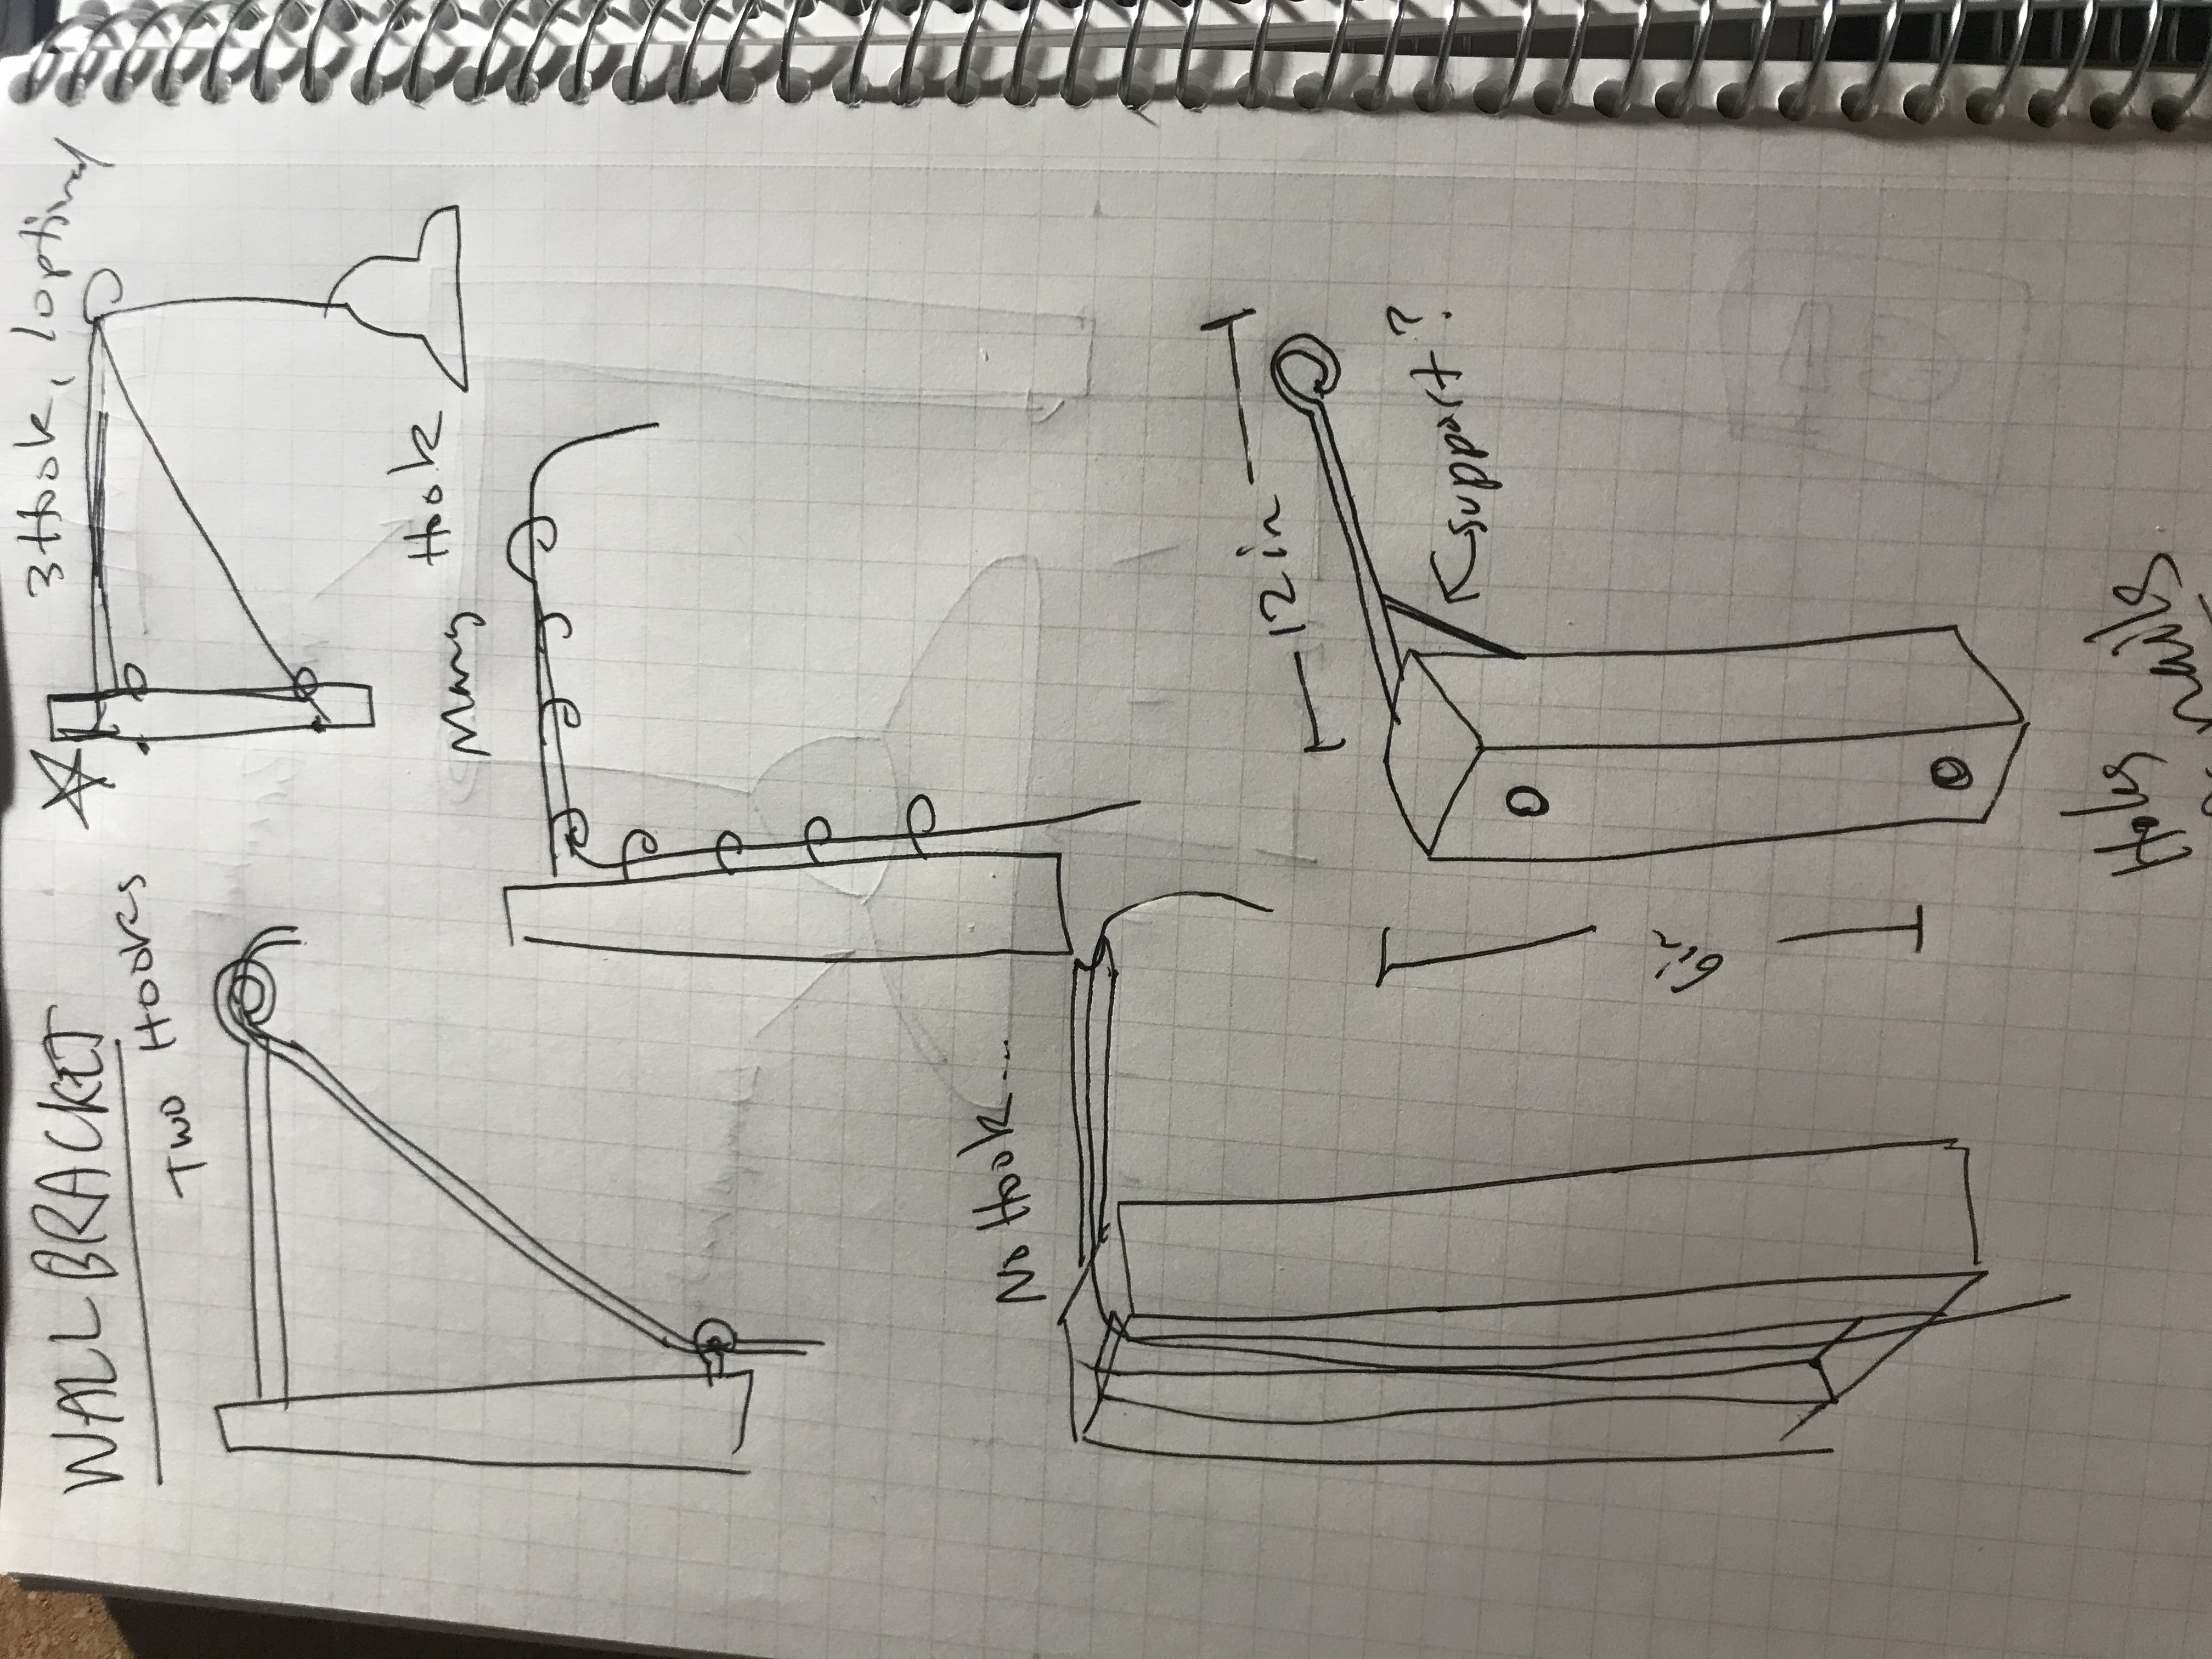 WALL BRACKET
Two Hooks
3 Hook, 1 optional
Many Hook
No Hook...
12 in
support?
6in
Holes
nails